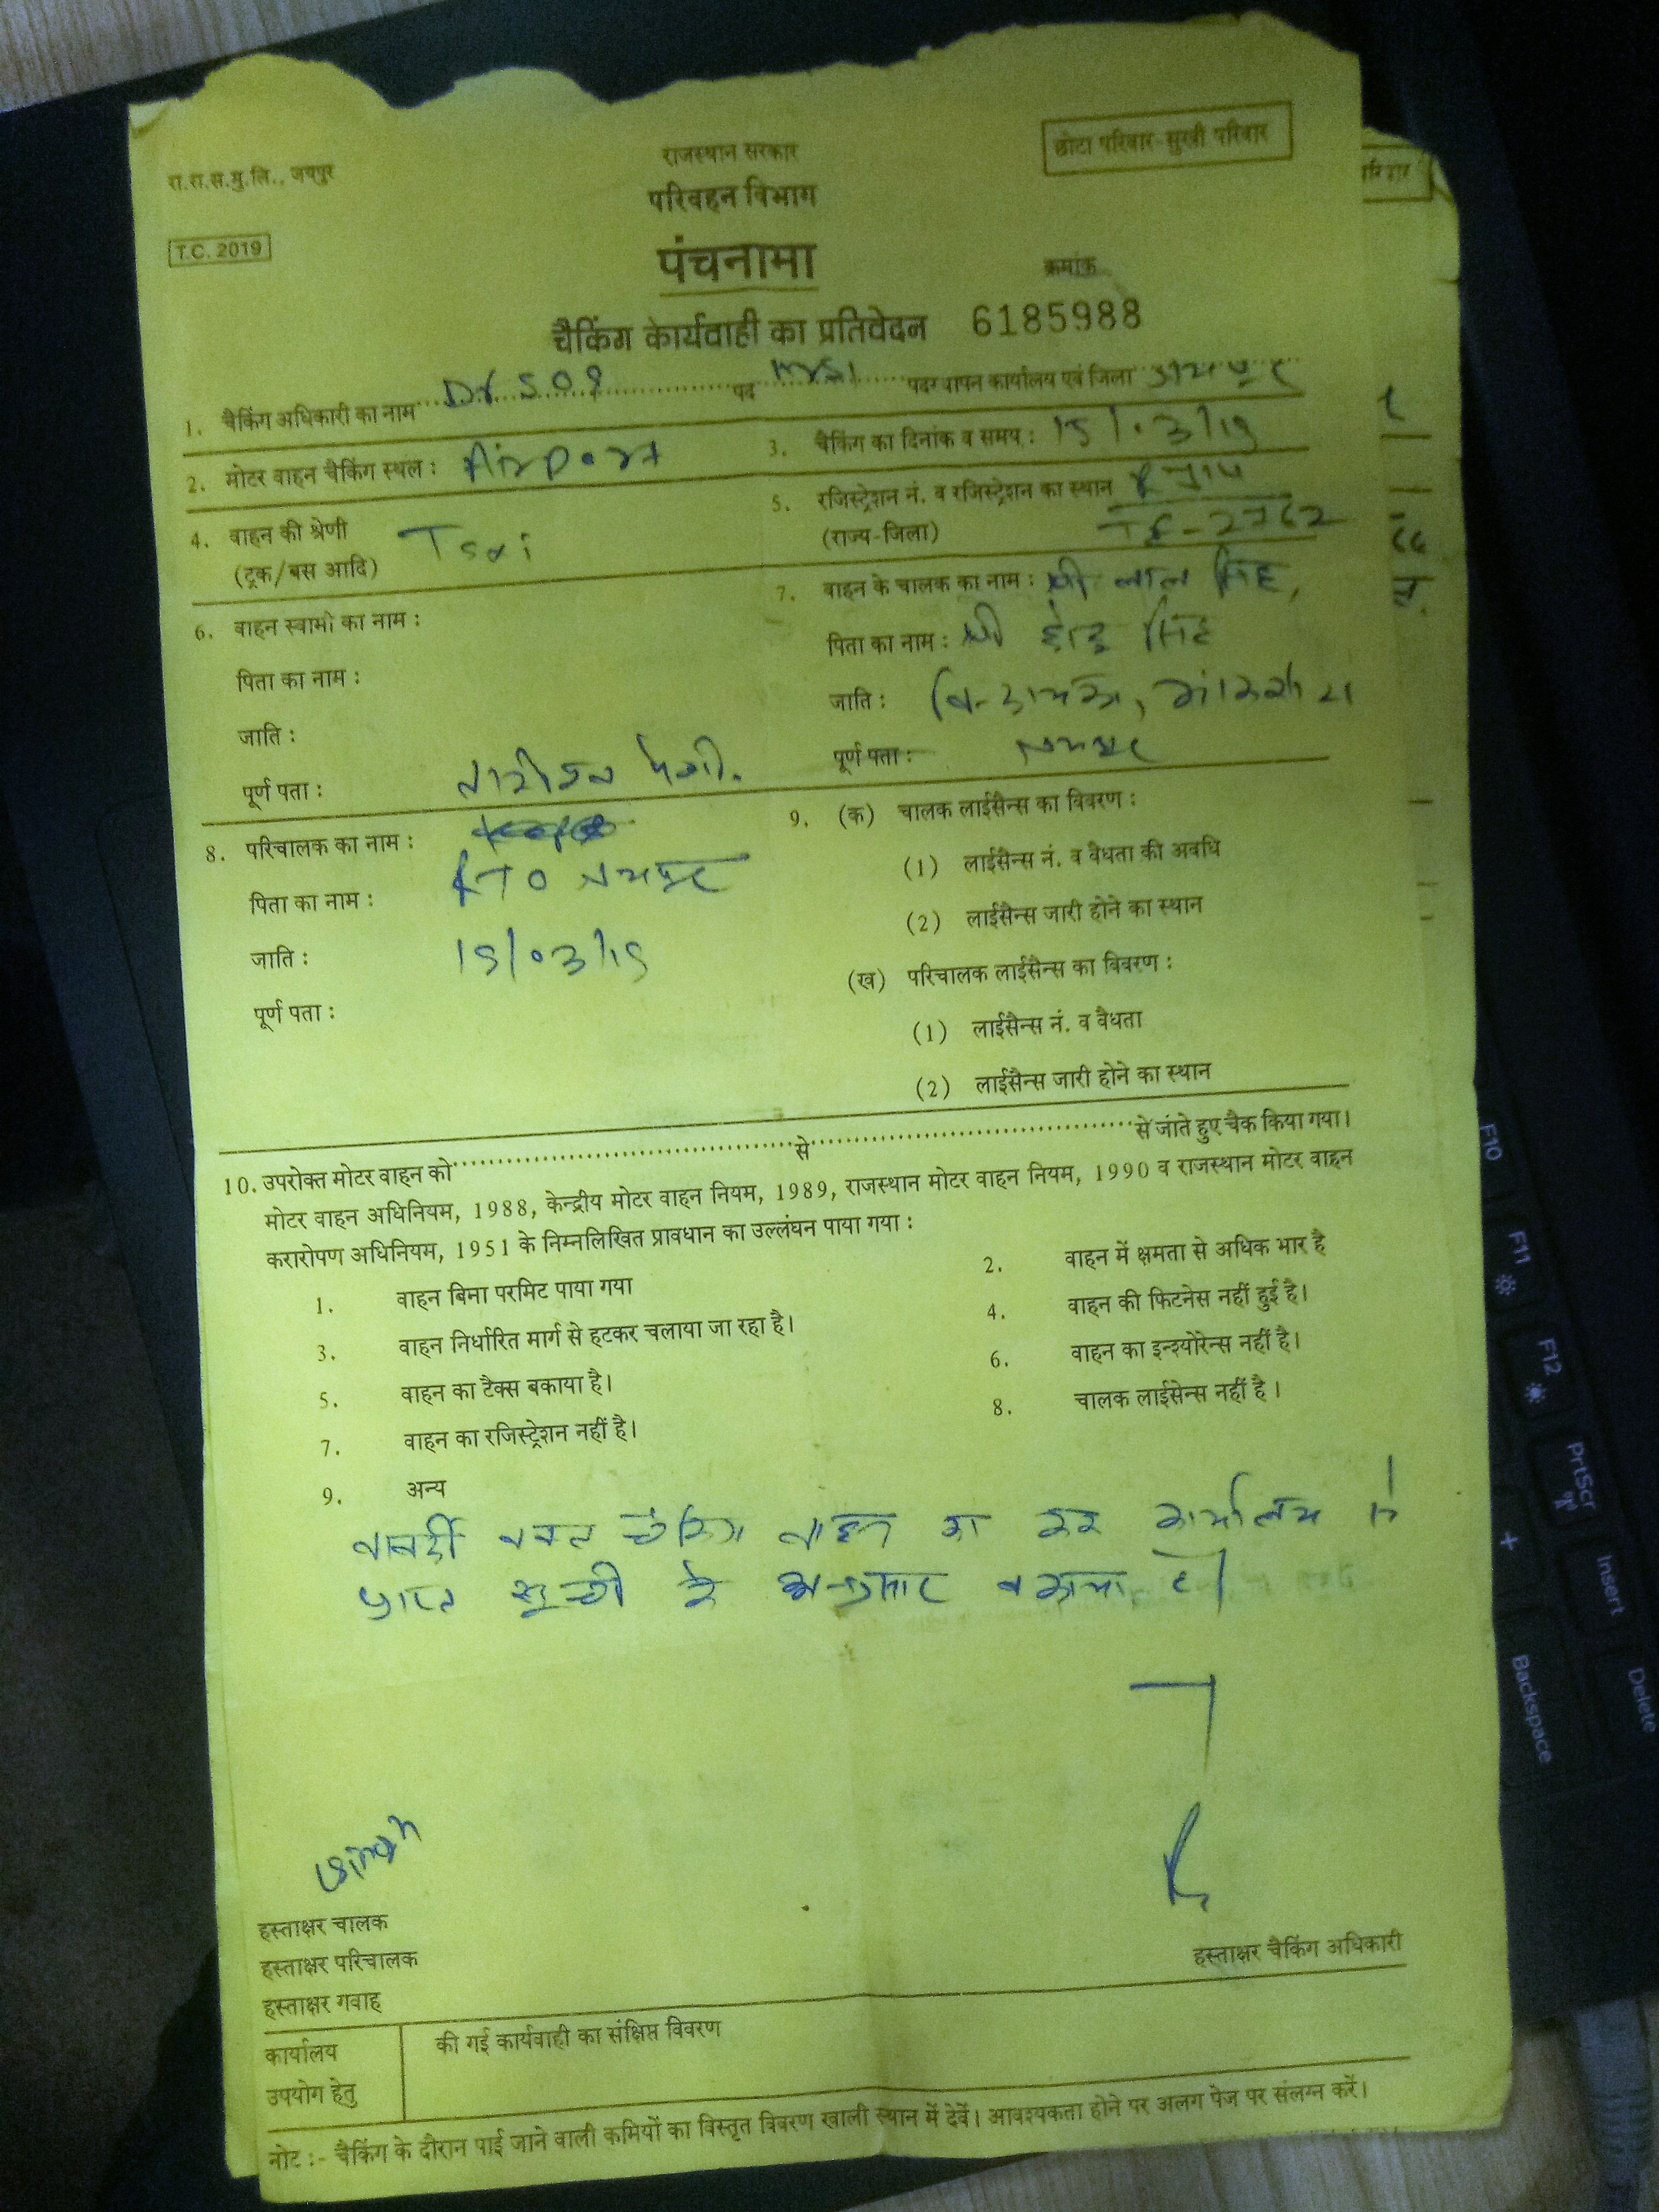 रा.रा.स.मु.लि., जयपुर
राजस्थान सरकार
छोटा परिवार-सुखी परिवार
परिवहन विभाग
T.C. 2019
पंचनामा
क्रमांक
चैकिंग कार्यवाही का प्रतिवेदन 6185988
1. चैकिंग अधिकारी का नाम पद पदस्थापन कार्यालय एवं जिला जयपुर
2. मोटर वाहन चैकिंग स्थल : Airport
3. चैकिंग का दिनांक व समय : 15/03/19
4. वाहन की श्रेणी
(ट्रक/बस आदि)
5. रजिस्ट्रेशन नं. व रजिस्ट्रेशन का स्थान
(राज्य-जिला)
6. वाहन स्वामी का नाम :
पिता का नाम :
जाति :
पूर्ण पता : तारीख पेशी.
7. वाहन के चालक का नाम : श्री लाल सिंह,
पिता का नाम : श्री सिंह
जाति :
पूर्ण पता : जयपुर
8. परिचालक का नाम :
पिता का नाम : RTO जयपुर
जाति : 15/03/19
पूर्ण पता :
9. (क) चालक लाईसैन्स का विवरण :
(1) लाईसैन्स नं. व वैधता की अवधि
(2) लाईसैन्स जारी होने का स्थान
(ख) परिचालक लाईसैन्स का विवरण :
(1) लाईसैन्स नं. व वैधता
(2) लाईसैन्स जारी होने का स्थान
10. उपरोक्त मोटर वाहन को से से जाते हुए चैक किया गया।
मोटर वाहन अधिनियम, 1988, केन्द्रीय मोटर वाहन नियम, 1989, राजस्थान मोटर वाहन नियम, 1990 व राजस्थान मोटर वाहन
करारोपण अधिनियम, 1951 के निम्नलिखित प्रावधान का उल्लंघन पाया गया :
1. वाहन बिना परमिट पाया गया
2. वाहन में क्षमता से अधिक भार है
3. वाहन निर्धारित मार्ग से हटकर चलाया जा रहा है।
4. वाहन की फिटनेस नहीं हुई है।
5. वाहन का टैक्स बकाया है।
6. वाहन का इन्श्योरेन्स नहीं है।
7. वाहन का रजिस्ट्रेशन नहीं है।
8. चालक लाईसेन्स नहीं है।
9. अन्य
वक्त चैकिंग वाहन का कर कार्यालय से
प्राप्त सूची के अनुसार बकाया है।
हस्ताक्षर चालक
हस्ताक्षर परिचालक
हस्ताक्षर चैकिंग अधिकारी
हस्ताक्षर गवाह
कार्यालय
उपयोग हेतु
की गई कार्यवाही का संक्षिप्त विवरण
नोट :- चैकिंग के दौरान पाई जाने वाली कमियों का विस्तृत विवरण खाली स्थान में देवें। आवश्यकता होने पर अलग पेज पर संलग्न करें।
F10
F11
F12
PrtScr
Insert
Delete
Backspace